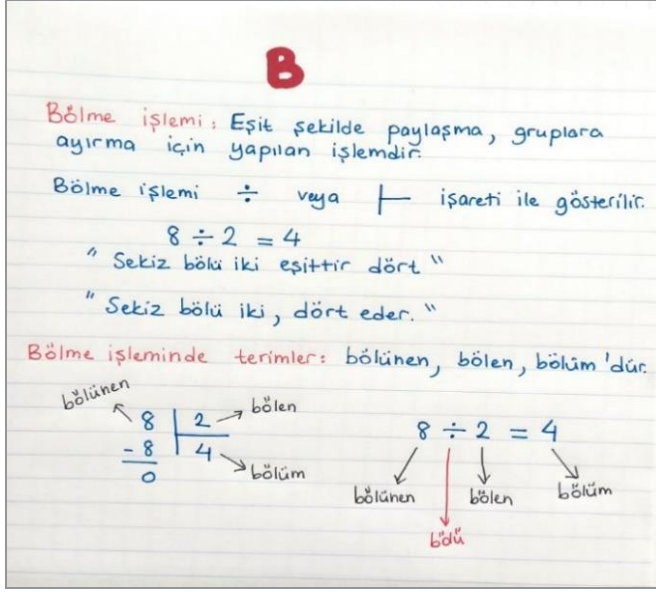 B
Bölme işlemi: Eşit şekilde paylaşma, gruplara
ayırma için yapılan işlemdir.
Bölme işlemi ÷ veya ├ işareti ile gösterilir.
8 ÷ 2 = 4
" Sekiz bölü iki eşittir dört "
" Sekiz bölü iki, dört eder. "
Bölme işleminde terimler: bölünen, bölen, bölüm'dür.
bölünen
8 2 bölen
- 8 4
0 bölüm
8 ÷ 2 = 4
bölünen bölen bölüm
bölü